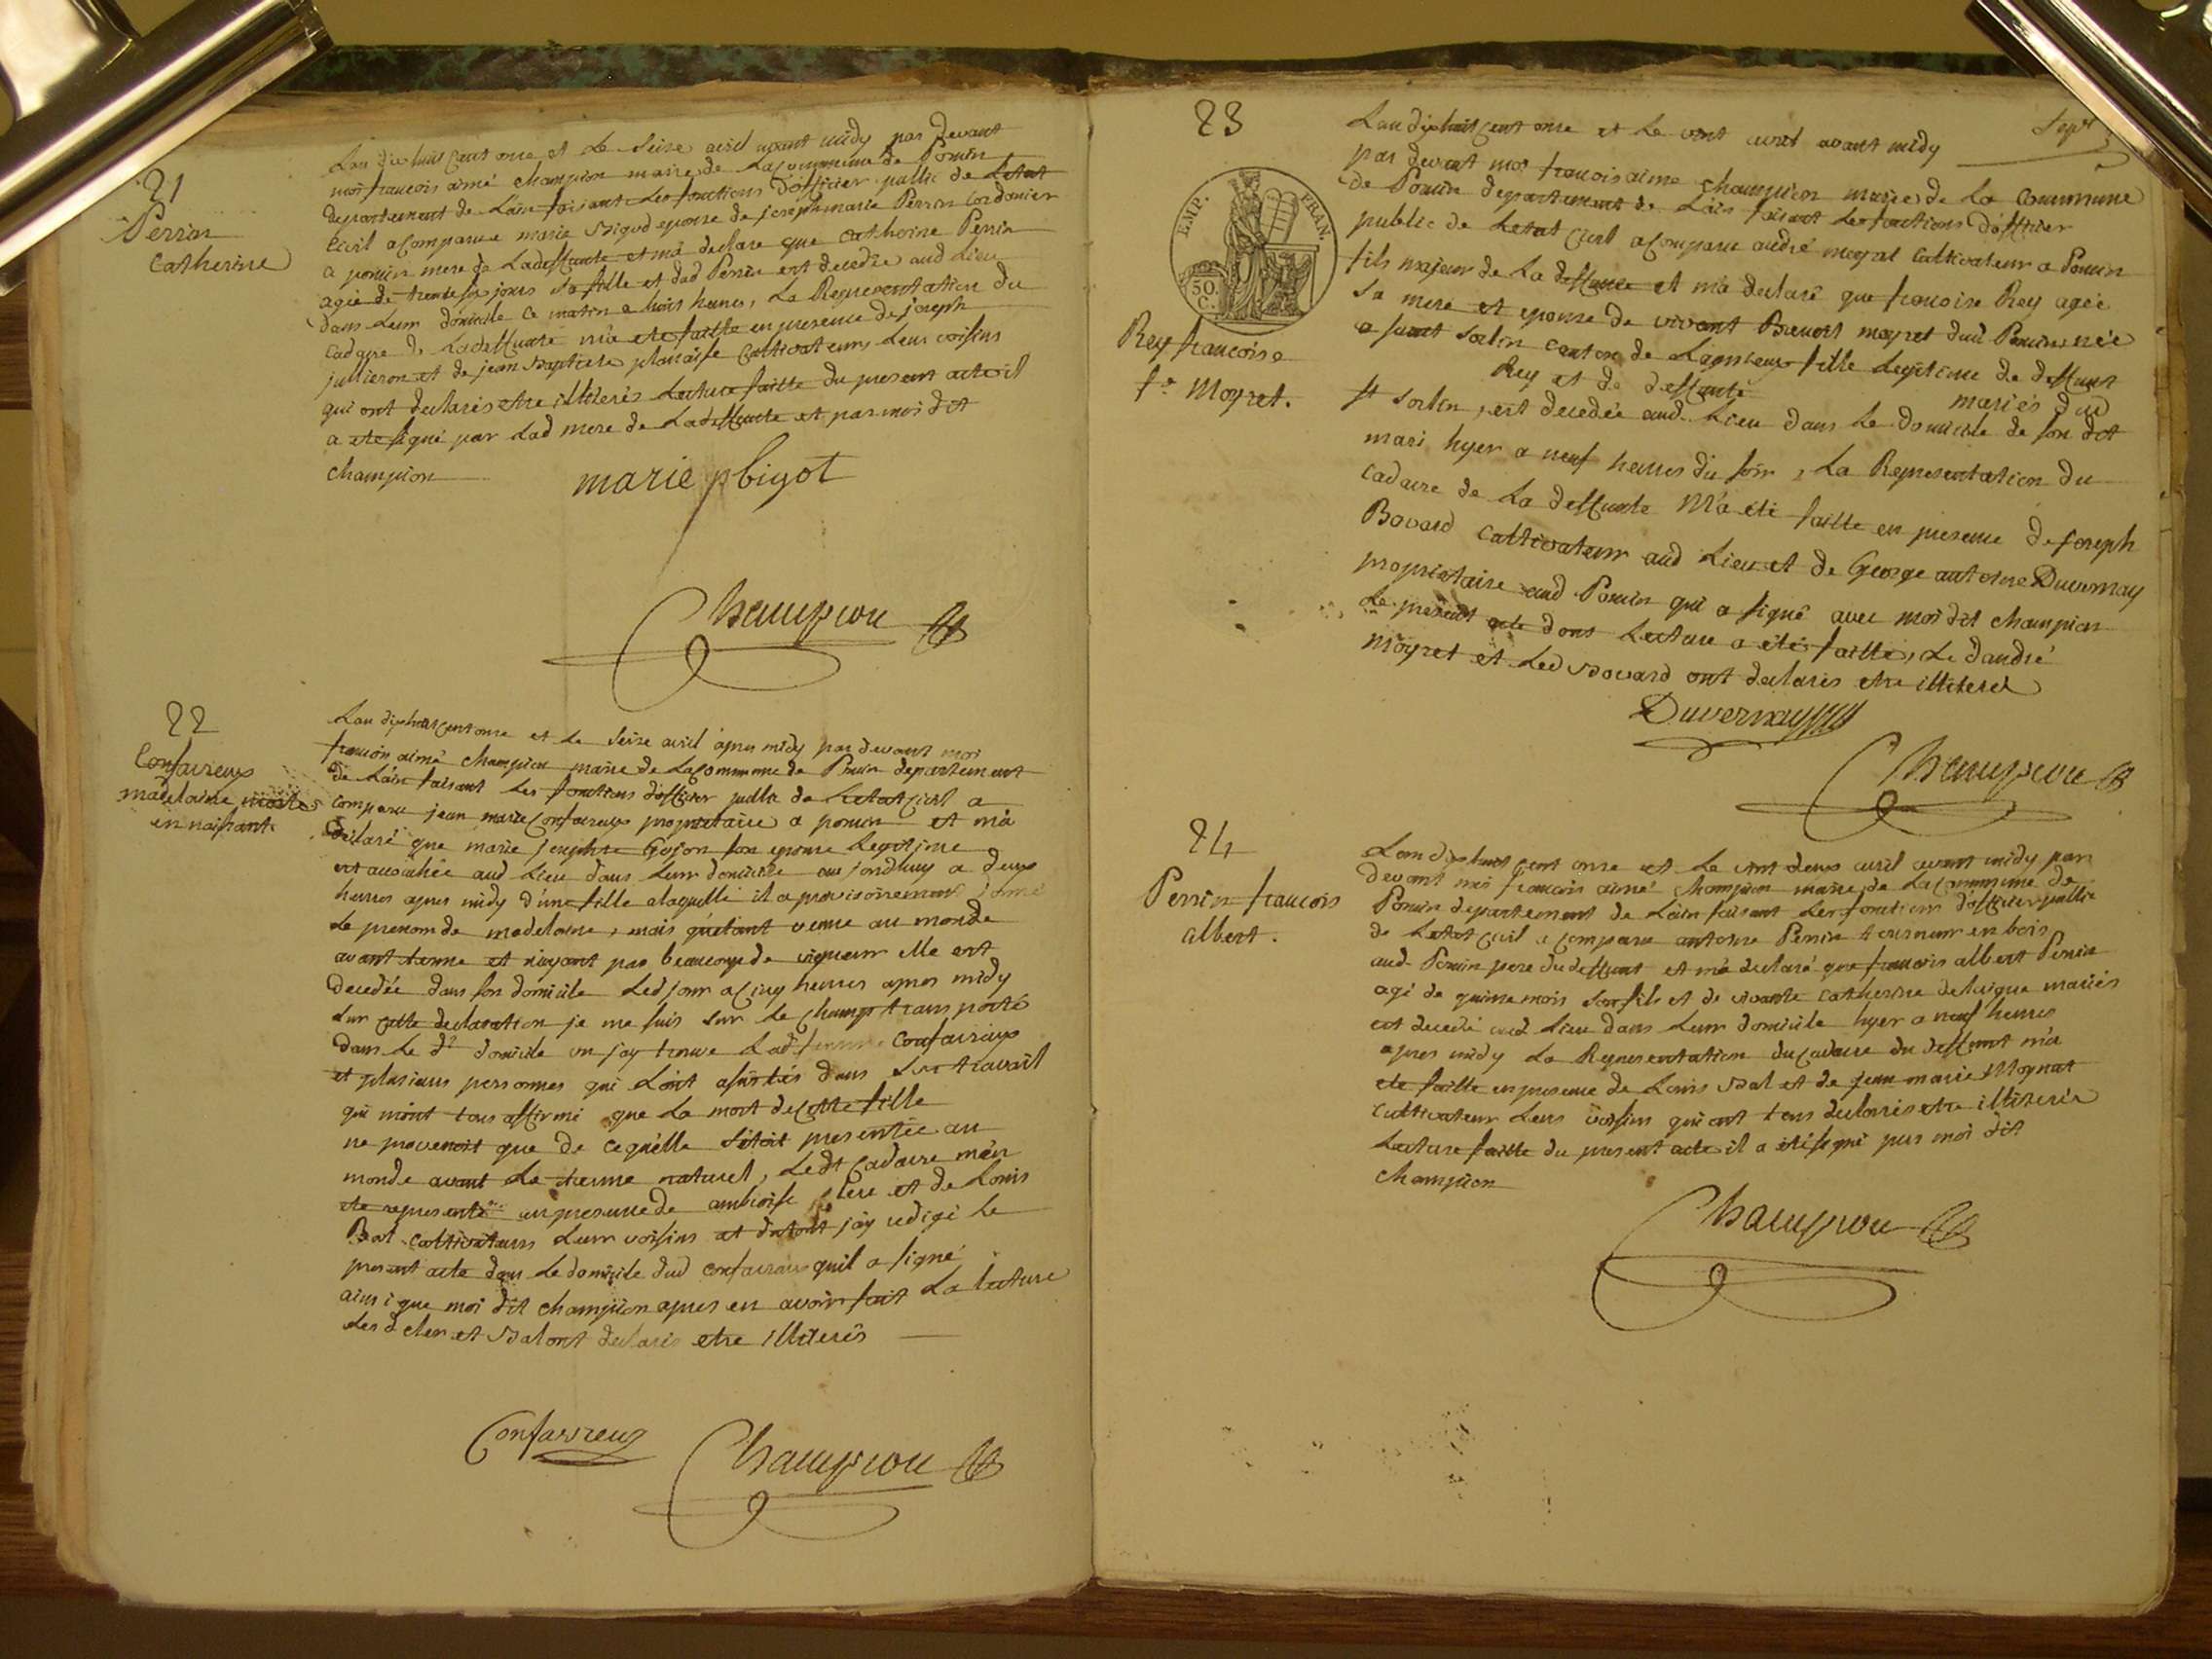 21
Perrin
Catherine
Lan dixhuit cent onze et le seize avril avant midy par devant
moi francois aimé champion maire de la commune de Poncin
departement de Lain faisant les fonctions d'officier public de letat
civil a comparue marie Bigod epouse de joseph marie Perrin Cordonier
a poncin mere de la deffunte et ma declare que catherine Perin
agée de trente six jours sa fille et dud Perrin est decedée aud Lieu
dans Leur domicile ce matin a huit heures, La Representation du
cadavre de La deffunte m'a ete faitte en presence de joseph
jullieron et de jean Baptiste cultivateurs Leurs voisins
qui ont declarés etre illiterés Lecture faitte du present acte il
a ete signé par Lad mere de La deffunte et par moi dit
champion
marie bigot
Champion
22
Confavreux
madelaine morte
en naissant
Lan dixhuit cent onze et le seize avril apres midy par devant moi
francois aimé champion maire de la commune de Poncin departement
de Lain faisant les fonctions d'officier public de Letat civil a
comparu jean marie Confavreux propriétaire a poncin et m'a
declaré que marie josephte Gojon son epouse Legitime
est accouchée aud Lieu dans Leur domicile aujourdhuy a deux
heures apres midy d'une fille a laquelle il a provisoirement donné
Le prenom de madelaine, mais qu'etant venue au monde
avant terme et n'ayant pas beaucoup de vigueur elle est
decedée dans son domicile Led jour a cinq heures apres midy
sur cette declaration je me suis sur le champ transporté
dans Le dt domicile ou jay trouvé Lad femme Confavreux
et plusieurs personnes qui L'ont assistés dans son travail
qui m'ont tous affirmé que La mort de cette fille
ne provenoit que de ce qu'elle s'etoit presentée au
monde avant Le terme naturel, Ledt cadavre m'a
ete representé en presence de ambroise clerc et de Louis
Bal cultivateurs Leur voisins et du tout j'ay redigé Le
present acte dans Le domicile dud confavreux qu'il a signé
ainsi que moi dit champion apres en avoir fait La lecture
Les d clerc et Bal ont declarés etre illiterés
Confavreux
Champion
Sept
23
EMP. FRAN.
50 C.
Rey francoise
fe Moyret.
Lan dixhuit cent onze et le vint avril avant midy
par devant moi francois aimé champion maire de La Commune
de Poncin departement de Lain faisant les fonctions d'officier
public de Letat civil a comparu andré moyret Cultivateur a Poncin
fils majeur de La deffunte et m'a declaré que francoise Rey agée
sa mere et epouse de vivant Benoit moyret dud Poncin, née
a saint sorlin canton de Lagnieux fille Legitime de deffunt
Rey et de deffunte mariés dud
st sorlin, est decedée aud Lieu dans Le domicile de son dit
mari hyer a neuf heures du soir, La Representation du
cadavre de La deffunte M'a été faitte en presence de Joseph
Bovard Cultivateur aud Lieu et de George antoine Duvernay
propriétaire aud Poncin qui a signé avec moi dit champion
Le present acte dont Lecture a été faitte, Le d andré
Moyret et Led Bovard ont declarés etre illiterés
Duvernay
Champion
24
Perrin francois
albert.
Lan dixhuit cent onze et Le vint deux avril avant midy par
devant moi francois aimé champion maire de La Commune de
Poncin departement de Lain faisant Les fonctions d'officier public
de Letat civil a comparu antoine Perrin tourneur en bois
aud Poncin pere du deffunt et m'a declaré que francois albert Perrin
agé de quinze mois son fils et de vivante Catherine mariés
est decedé aud Lieu dans Leur domicile hyer a neuf heures
apres midy La Representation du cadavre du deffunt m'a
ete faitte en presence de Louis Bal et de jean marie Moynat
Cultivateur Leurs voisins qui ont tous declarés etre illiterés
Lecture faitte du present acte il a été signé par moi dit
champion
Champion